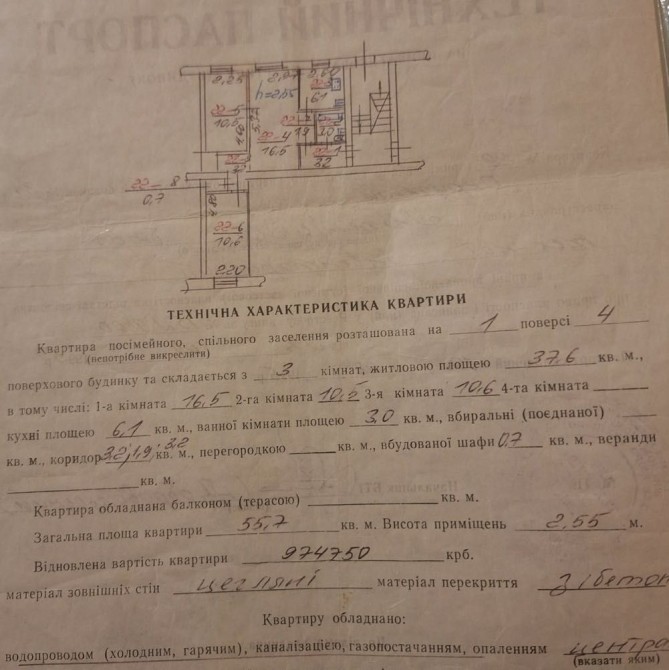 ТЕХНІЧНИЙ ПАСПОРТ
2.25
h=2,55
22-5
10,5
6,1
22-4
16,5
1,9
3,0
3,2
22-8
0,7
22-6
10,6
2.20
ТЕХНІЧНА ХАРАКТЕРИСТИКА КВАРТИРИ
Квартира посімейного, спільного заселення розташована на 1 поверсі 4
(непотрібне викреслити)
поверхового будинку та складається з 3 кімнат, житловою площею 37,6 кв. м.,
в тому числі: 1-а кімната 16,5 2-га кімната 10,5 3-я кімната 10,6 4-та кімната
кухні площею 6,1 кв. м., ванної кімнати площею 3,0 кв. м., вбиральні (поєднаної)
кв. м., коридор 3,2; 1,9; 3,2 кв. м., перегородкою кв. м., вбудованої шафи 0,7 кв. м., веранди
кв. м.
Квартира обладнана балконом (терасою) кв. м.
Загальна площа квартири 55,7 кв. м. Висота приміщень 2,55 м.
Відновлена вартість квартири 974750 крб.
матеріал зовнішніх стін цегляні матеріал перекриття з/бетон
Квартиру обладнано:
водопроводом (холодним, гарячим), каналізацією, газопостачанням, опаленням центра
(вказати яким)